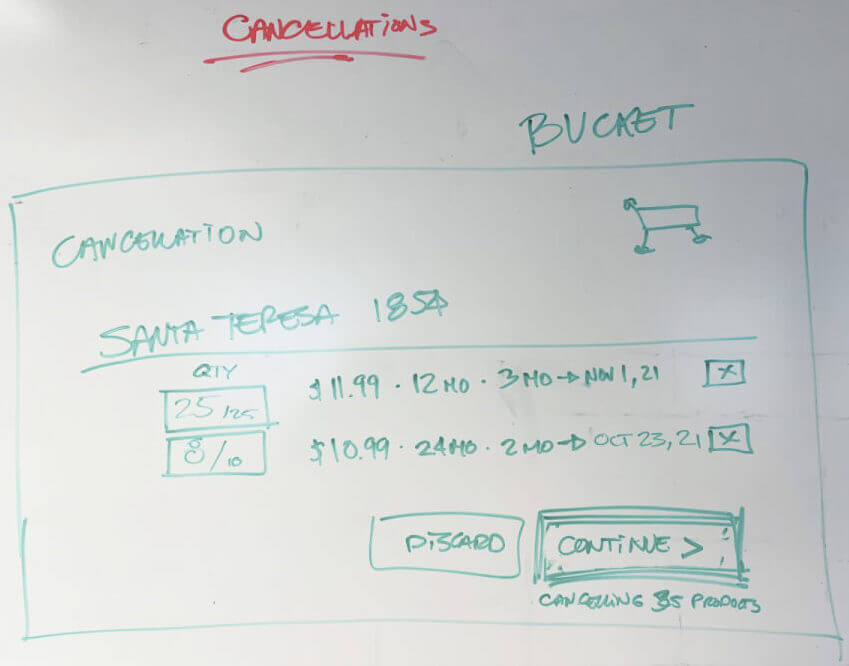 CANCELLATIONS
BUCKET
CANCELLATION
SANTA TERESA 1854
QTY
25/125 $11.99 · 12 MO · 3 MO → NOV 1, 21 X
8/10 $10.99 · 24 MO · 2 MO → OCT 23, 21 X
DISCARD CONTINUE >
CANCELLING PRODUCTS